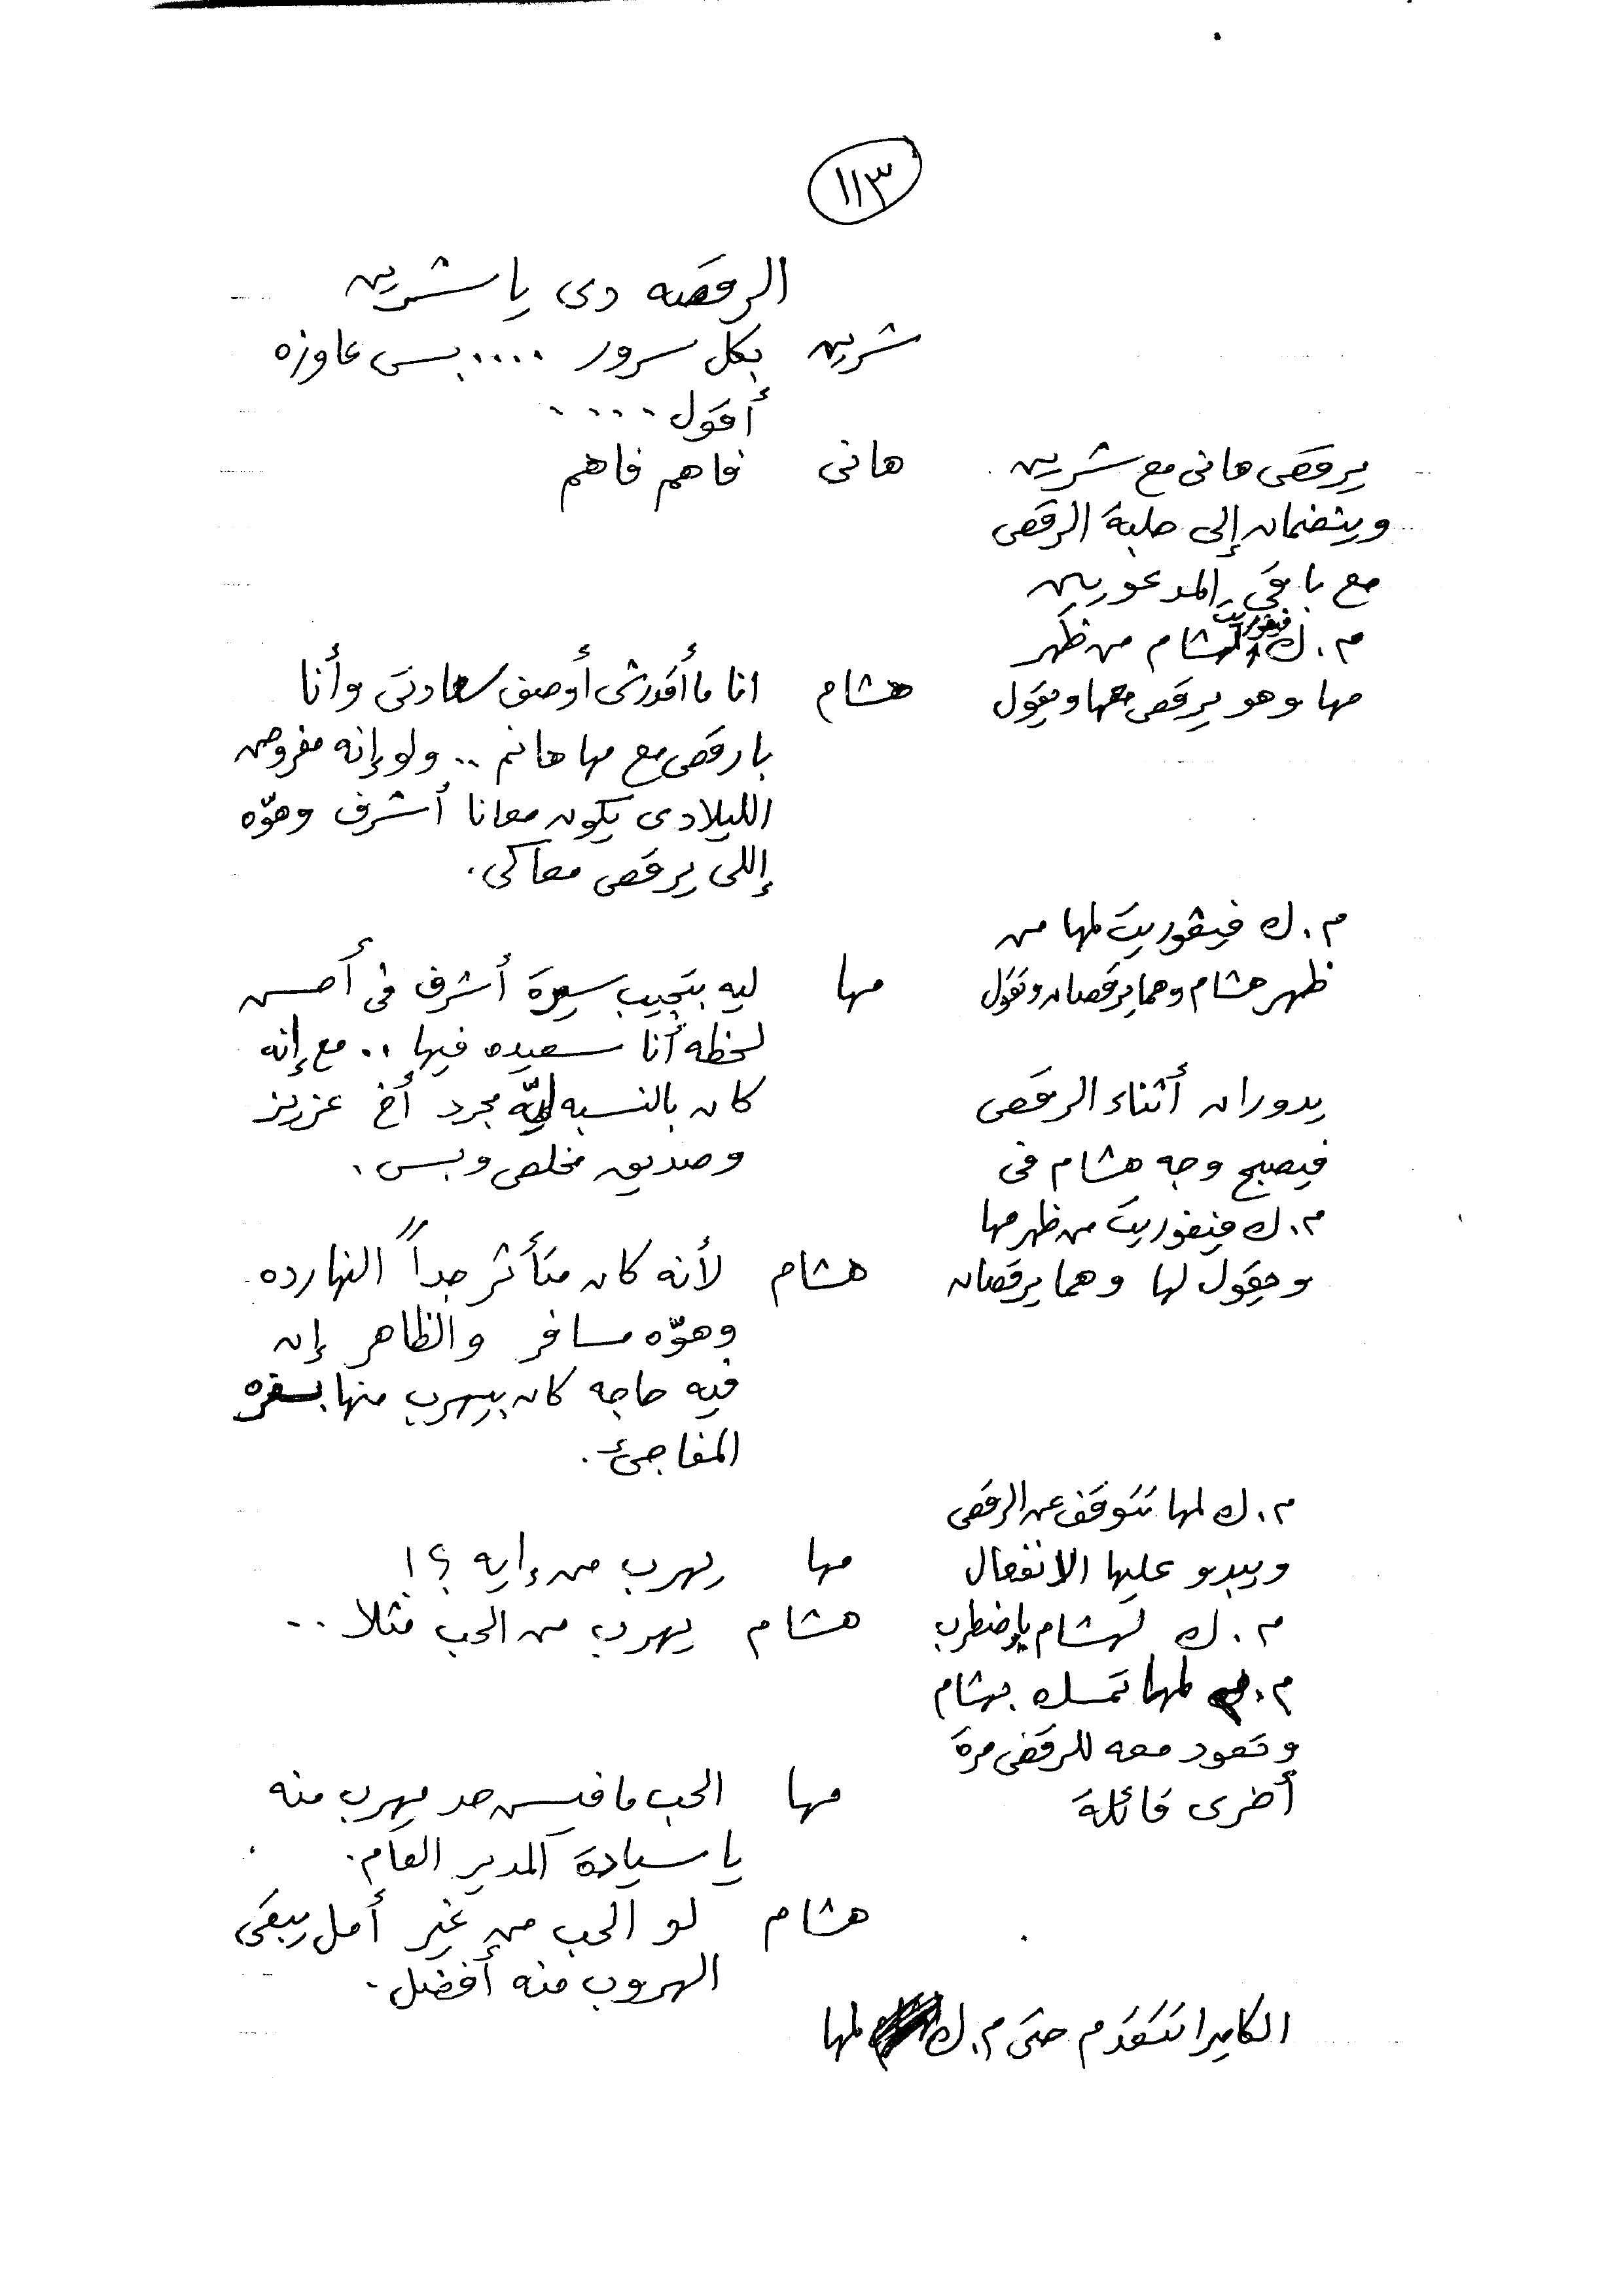 ١١٣
الرقصه دى يا شرين
شرين بكل سرور .... بس عاوزه
أقول ....
يرقص هانى مع شرين هانى فاهم فاهم
وينضمان إلى حلبة الرقص
مع باقى المدعوين
م. ك فيفوريت لهشام من ظهر
مها وهو يرقص معها ويقول هشام انا ما أقدرش أوصف سعادتى وأنا
بارقص مع مها هانم .. ولو إنه مفروض
الليلادى يكون معانا أشرف وهوّه
إللى يرقص معاكى .
م. ك فيفوريت لمها من
ظهر هشام وهما يرقصان وتقول مها ليه بتجيب سيرة أشرف فى أحسن
لحظه أنا سعيده فيها .. مع إنه
يدوران أثناء الرقص كان بالنسبه ليّه مجرد أخ عزيز
فيصبح وجه هشام فى وصديق مخلص وبس .
م. ك فيفوريت من ظهر مها
ويقول لها وهما يرقصان هشام لأنه كان متأثر جداً النهارده
وهوّه مسافر والظاهر إن
فيه حاجه كان بيهرب منها بسفره
المفاجئ .
م. ك لمها تتوقف عن الرقص
ويبدو عليها الانفعال مها يهرب من إيه ؟!
م. ك لهشام باضطراب هشام يهرب من الحب مثلا ..
م. لمها تمسك بهشام
وتعود معه للرقص مرة
أخرى قائلة مها الحب ما فيس حد يهرب منه
يا سيادة المدير العام .
هشام لو الحب من غير أمل يبقى
الهروب منه أفضل .
الكاميرا تتقدم حتى م. ك لمها